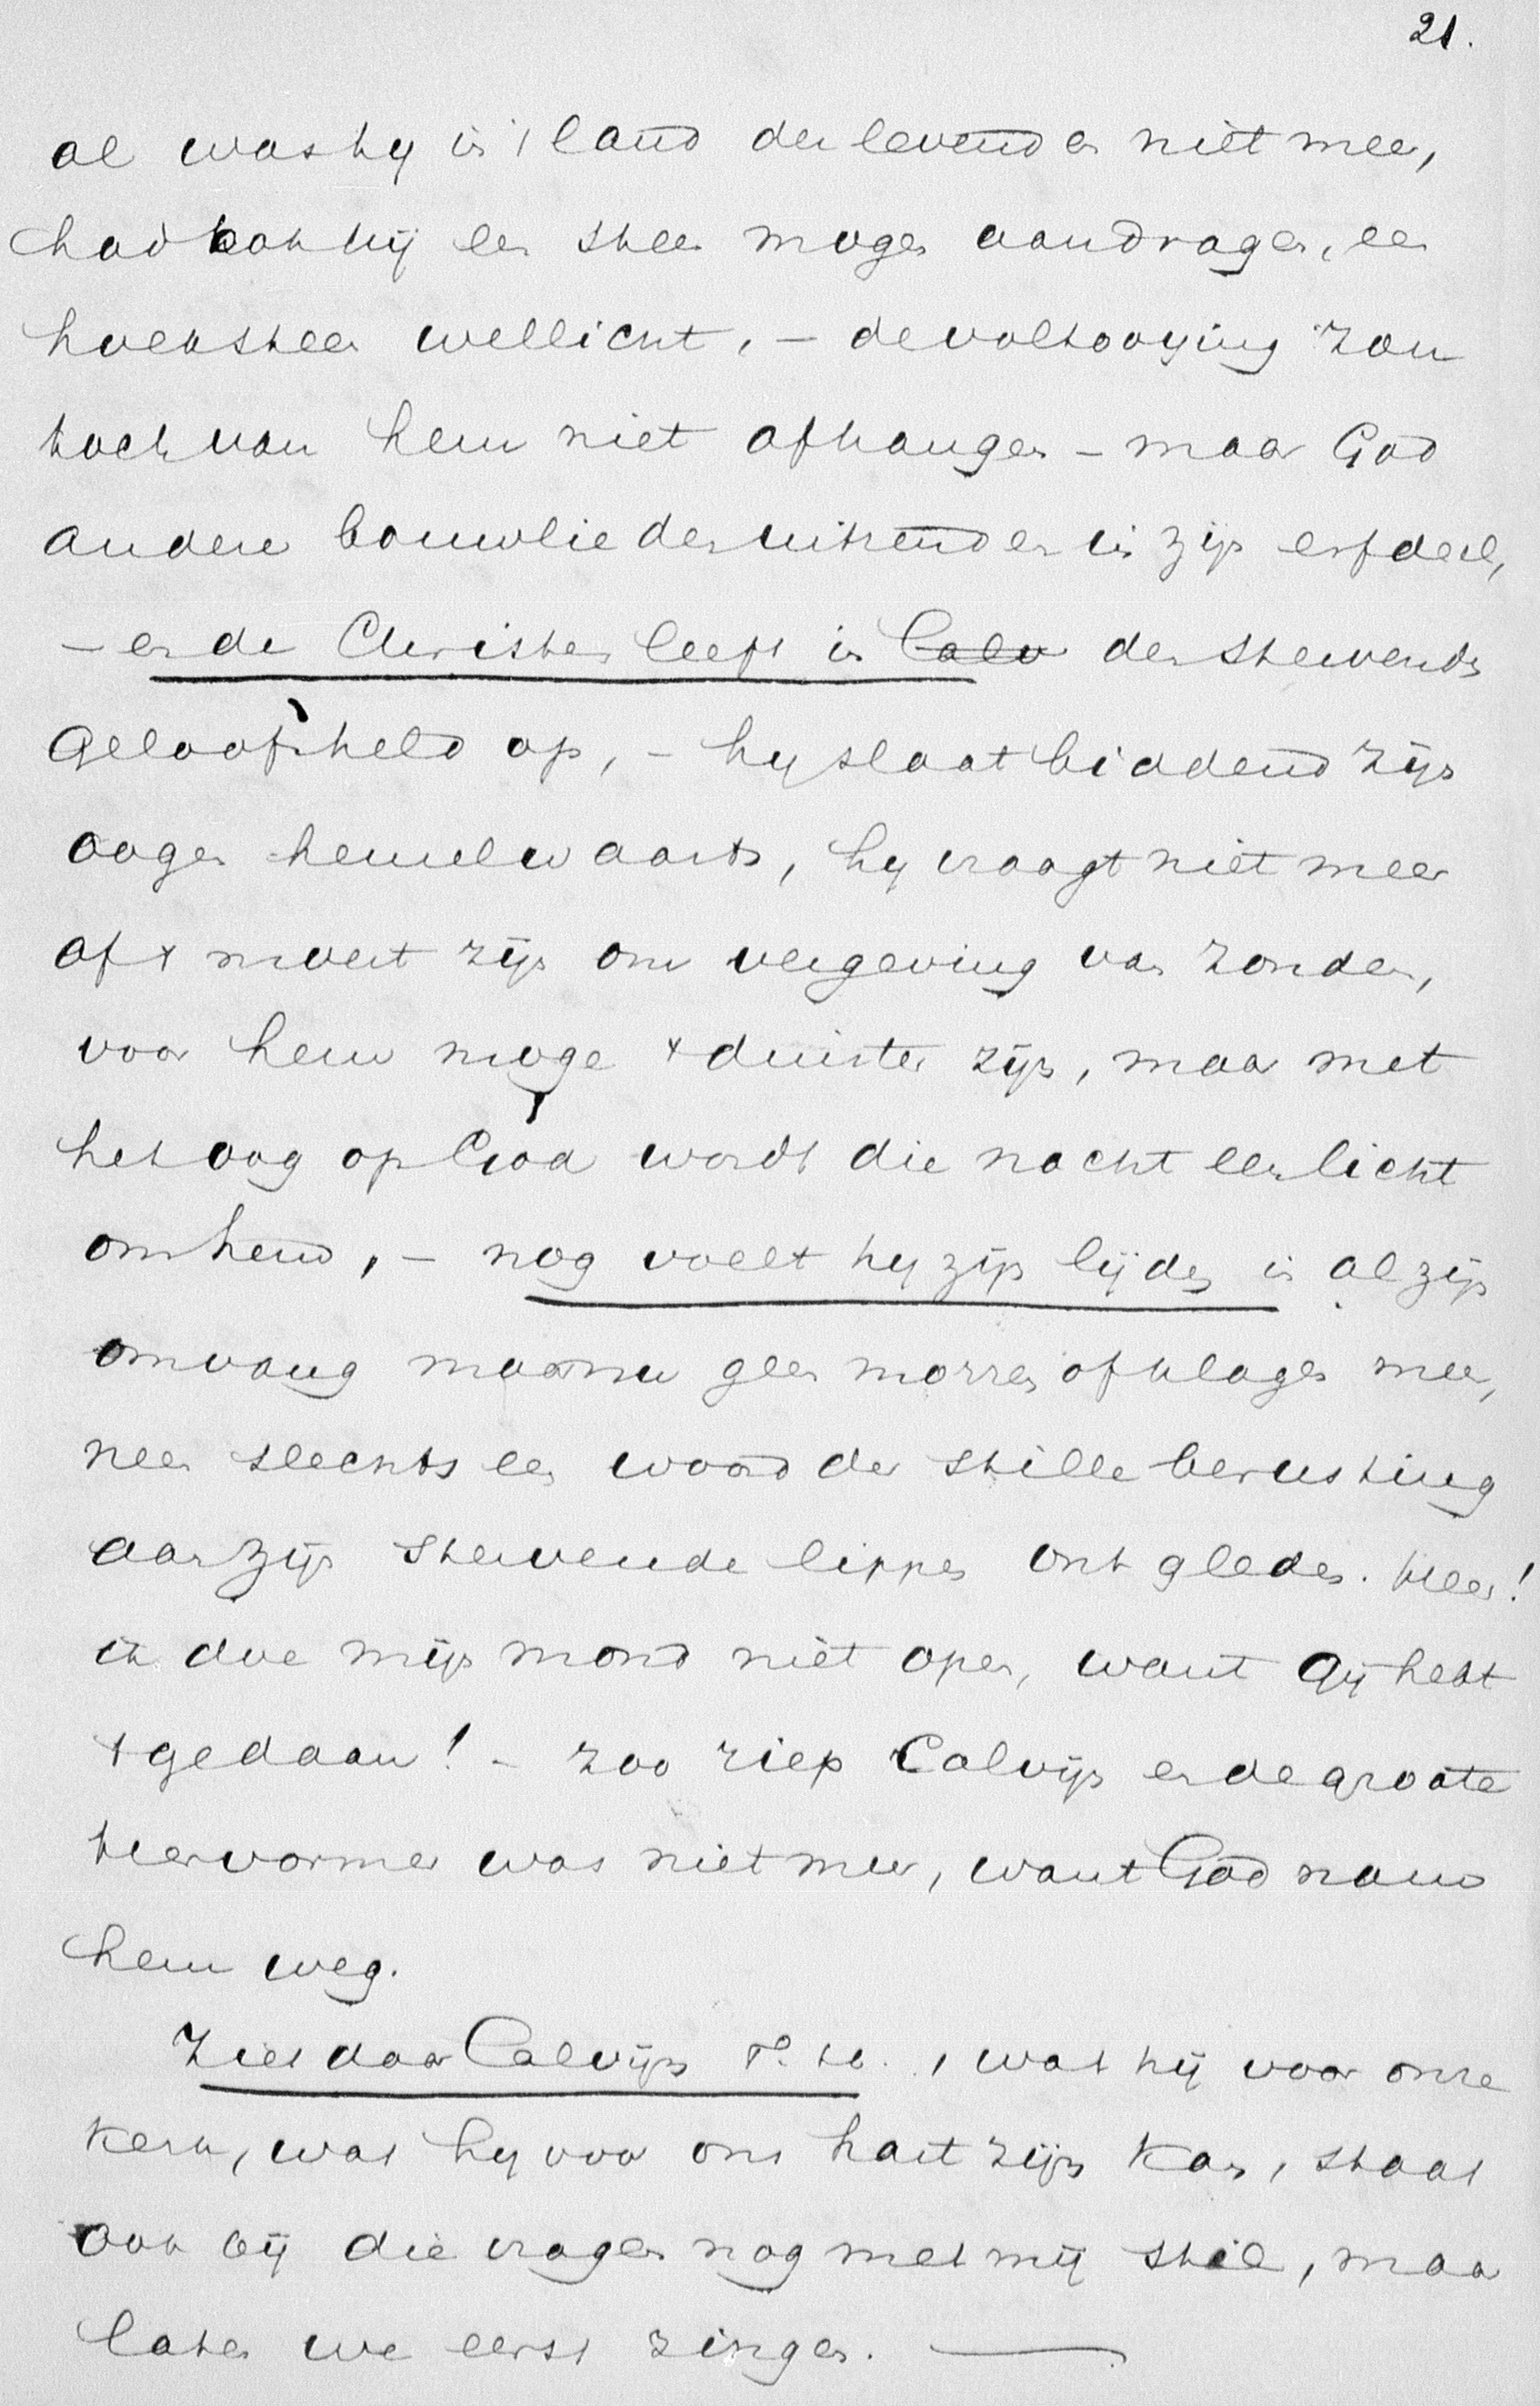 21.
al was hij in 't land der levenden niet meer,
had ook hij een steen mogen aandragen, een
hoeksteen wellicht, – de voltooying zou
toch van hem niet afhangen – maar God
andere bouwlieden uitzenden in zijn erfdeel,
– en de Christen leeft in Calv den stervends
geloofsheld op, – hy slaat biddend zijn
oogen hemelwaarts, hy vraagt niet meer
of 't moest zijn om vergeving van zonden,
voor hem moge 't duister zijn, maar met
het oog op God wordt die nacht een licht
om hem, – nog voelt hy zijn lijden in al zijn
omvang maar nu geen morren of klagen meer,
neen slechts een woord der stille berusting
aan zijn stervende lippen ontgleden. Heer!
ik doe mijn mond niet open, want Gij hebt
't gedaan! – zoo riep Calvijn en de groote
Hervormer was niet meer, want God nam
hem weg.
Ziet daar Calvijn T. H., wat hij voor onze
Kerk, wat hy voor ons hart zijn kan, staat
ook bij die vragen nog met mij stil, maar
laten we eerst zingen. —